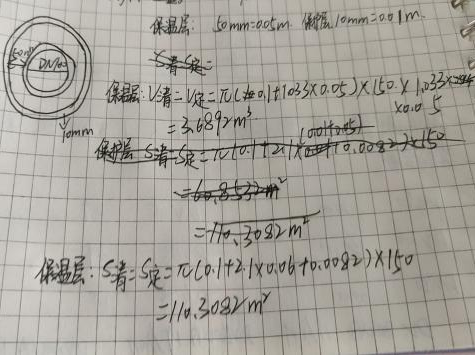 保温层: 50mm=0.05m 保护层10mm=0.01m.
50mm
DN100
10mm
S清=S定=
保温层:V清=V定=π(0.1+1.033×0.05)×150×1.033
×0.05
=3.6892m³
(0.01+0.05)
保护层 S清=S定=π(0.1+2.1×+0.0082)×150
=60.8532m²
=110.3082m²
保温层:S清=S定=π(0.1+2.1×0.06+0.0082)×150
=110.3082m²